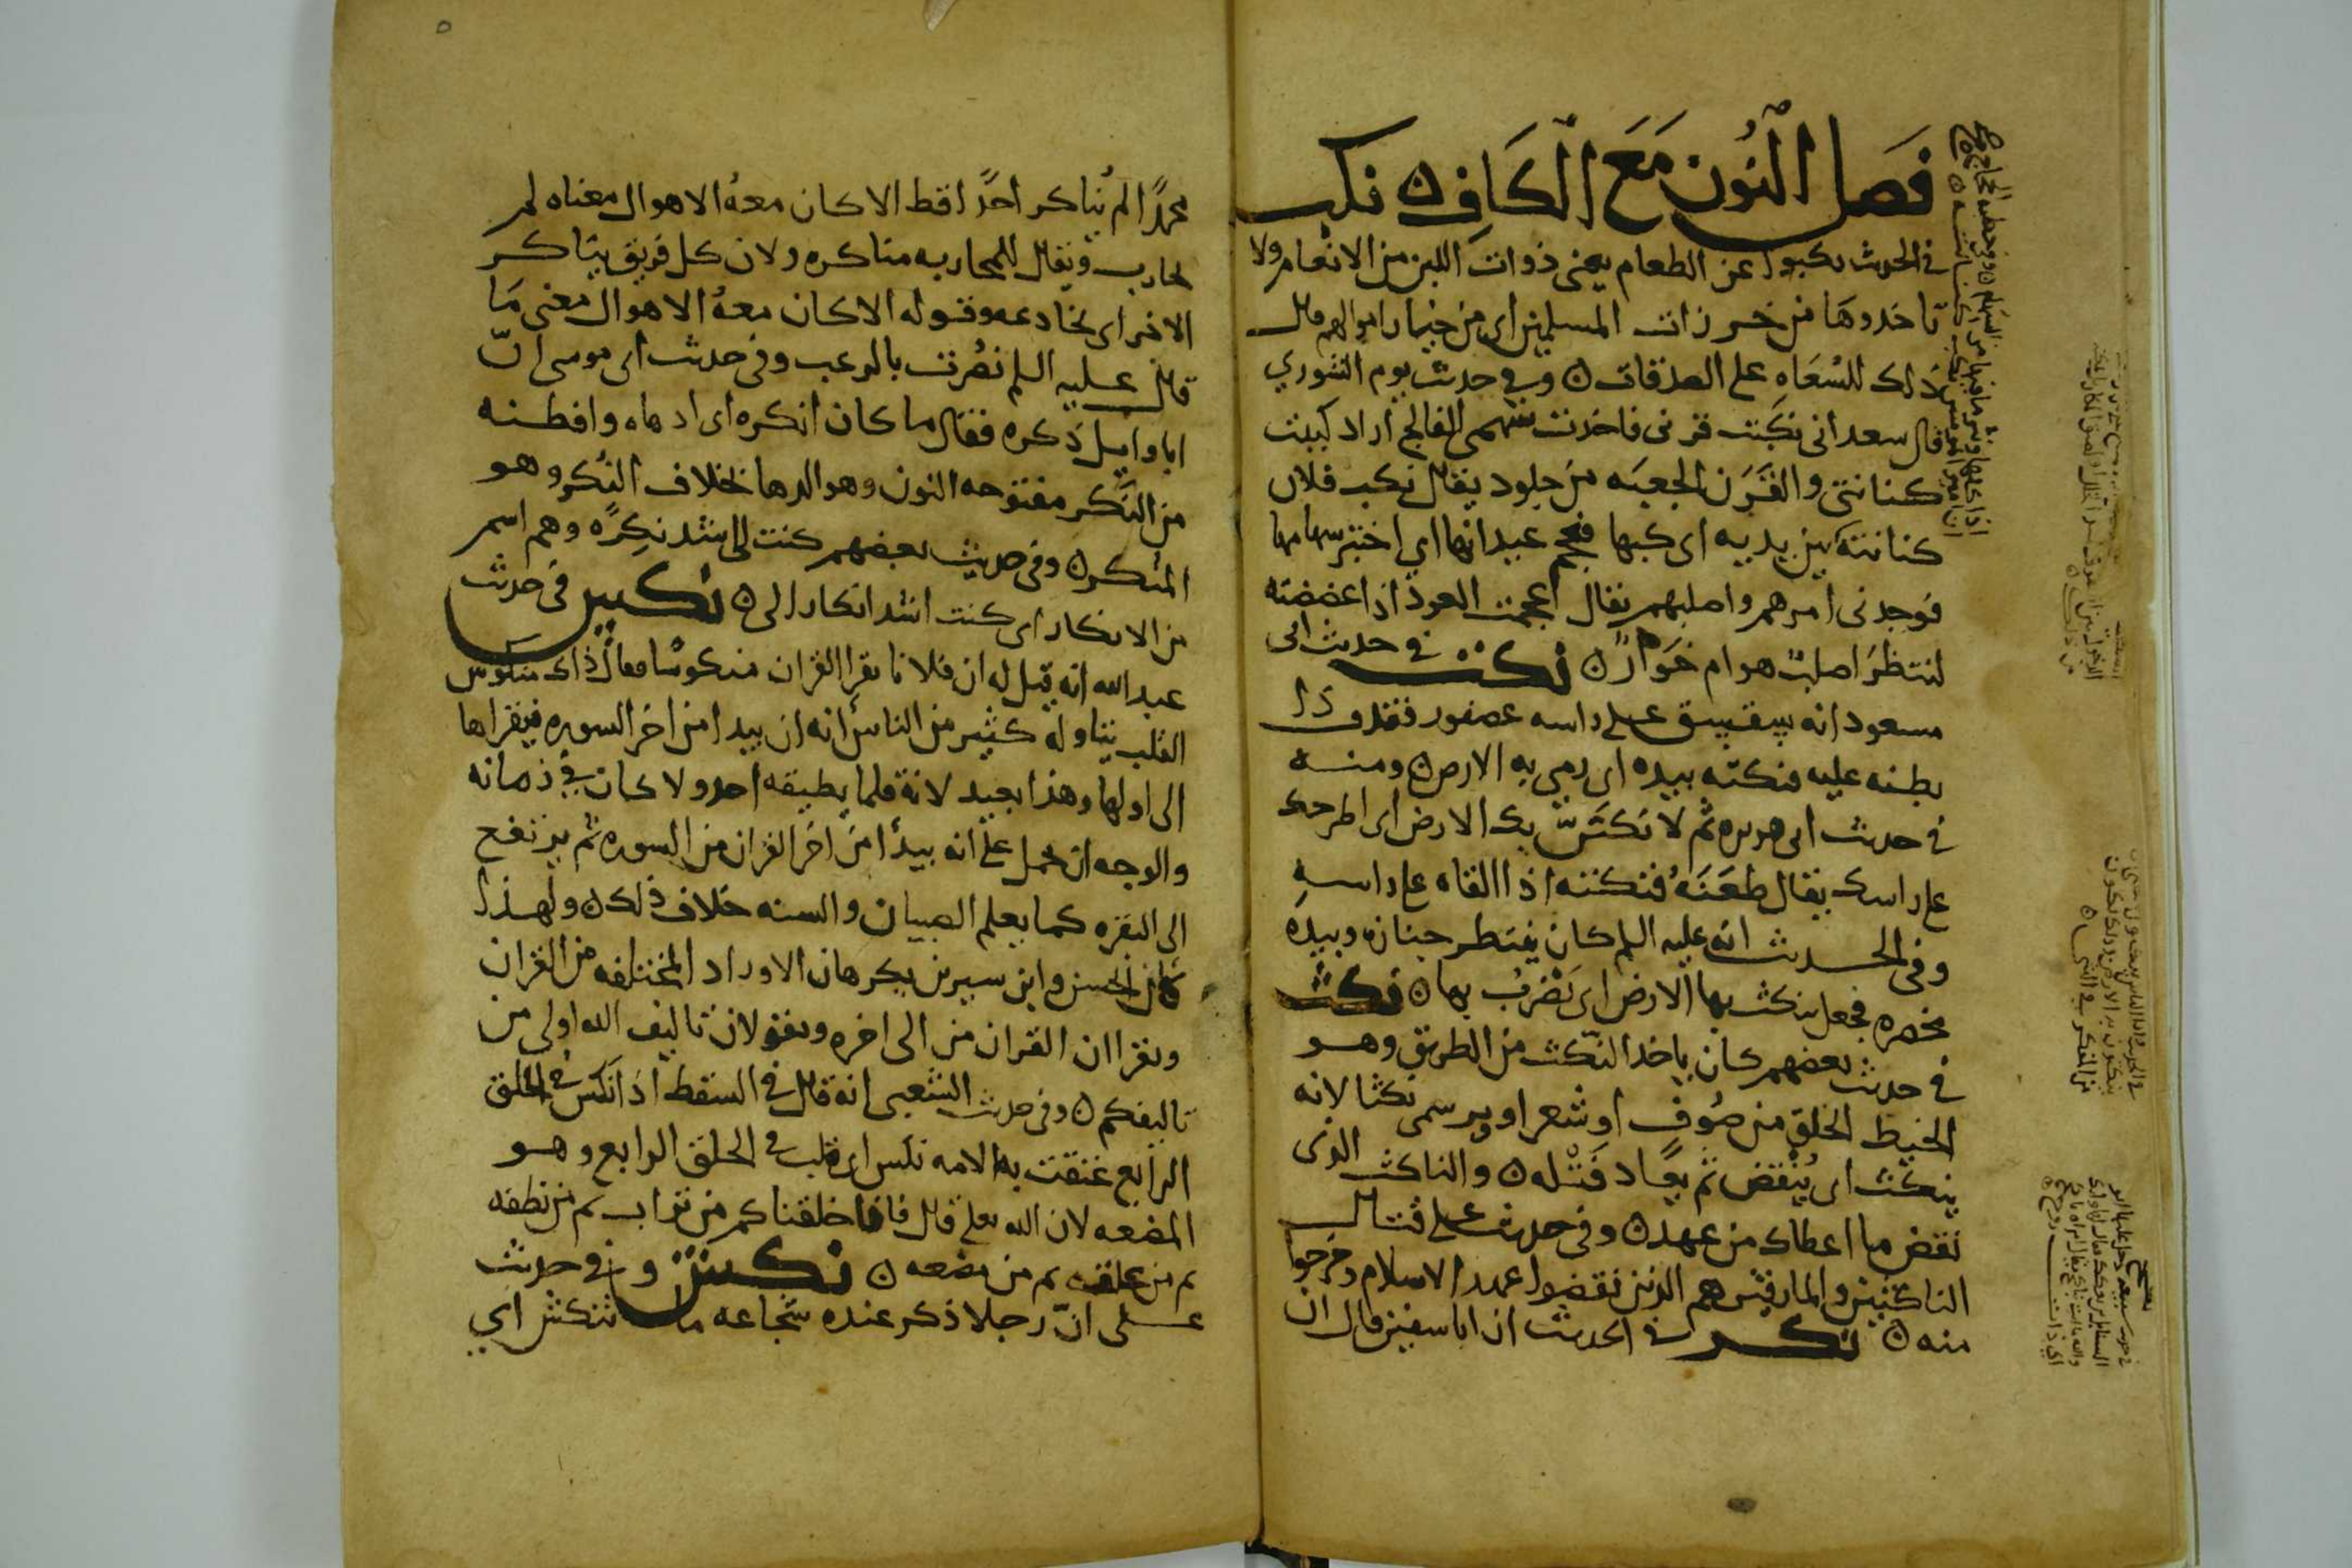 فَصل النُون مَعَ الكَافِ ن نكب
في الحديث نكبوا عن الطعام يعني ذوات اللبن من الانعام ولا
تاخدوها من حرزات المسلمين اي من خيار اموالهم قال
ذلك للسُعَاهِ على الصدقات ن وفي حديث يوم الشوري
قال سعد اني نكبت قرني فاخذت سهمي الفالج اراد كببت
كنانتي والقَرَن الجعبَه من جلود يقال نكب فلان
كنانته بين يديه اي كبها فعجم عيدانها اي اختبر سهامها
فوجدني امرهم واصلبهم يقال اعجمت العود اذا عضضته
لتنظرَ اصلبٌ هو ام خَوّارٌ ن نكت في حديث ابن
مسعود انه سقسق على راسه عصفور فقذف ذا
بطنه عليه فنكته بيده اي رمى به الارض ن ومنه
في حديث ابي هريره ثم لا نكتَنّ بك الارض اي اطرحك
على راسك يقال طعَنَهُ فنكته اذا القاه على راسهِ
وفي الحديث انه عليه السلم كان ينتظر جنازه وبيده
مخصره فجعل ينكث بها الارض اي يَضرِبُ بها ن نكث
في حديث بعضهم كان ياخذ النّكث من الطريق وهو
الخيط الخلق من صُوفٍ او شعر او وبر سمي نكثا لانه
ينكث اي يُنْقض ثم يعَاد فَتْله ن والناكث الذي
نقض ما اعطاك من عهد ن وفي حديث على قتال
الناكثين والمارقين هم الذين نقضوا عهد الاسلام وخرجوا
منه ن نكر في الحديث ان ابا سفين قال ان
محمدًا لم يُناكر احدًا قط الا كان معهُ الاهوال معناه لم
يحارب ويقال للمحاربه مناكره ولان كل فريق يناكر
الاخر اي يخادعه وقوله الا كان معهُ الاهوال معنى مَا
قال عليه السلم نصُرت بالرعب وفي حديث ابي موسى انّ
ابا وايل ذَكره فقال ما كان انكره اي ادهاه وافطنه
من النَّكر مفتوحه النون وهو الدها بخلاف النُكر وهو
المنكر ن وفي حديث بعضهم كنت لي اشد نكِرًه وهم اسم
من الانكار اي كنت اشد انكارا لي ن نكس في حديث
عبد الله انه قيل له ان فلانا يقرا القران منكوسًا فقال ذاك منكوس
القلب يتاوله كثير من الناس انه ان يبدا من اخر السوره فيقراها
الى اولها وهذا بعيد لانه قلما يطيقه احد ولا كان في زمانه
والوجه ان يحمل على انه يبدأ من اخر القران من السوره ثم يرتفع
الى البقره كما يعلم الصبيان والسنه خلاف ذلك ن ولهذا
كان الحسن وابن سيرين يكرهان الاوراد المختلفه من القران
ويقراان القران من الى اخره ويقولان تاليف الله اولى من
تاليفكم ن وفي حديث الشعبي انه قال في السقط اذا نكس في الخلق
الرابع عتقت به الامه نكس اي قلب في الخلق الرابع وهو
المضعه لان الله تعلى قال فانا خلقناكم من تراب ثم من نطفه
ثم من علقه ثم من مضعه ن نكش و في حديث
على انّ رجلا ذكر عنده شجاعه ما تنكش اي